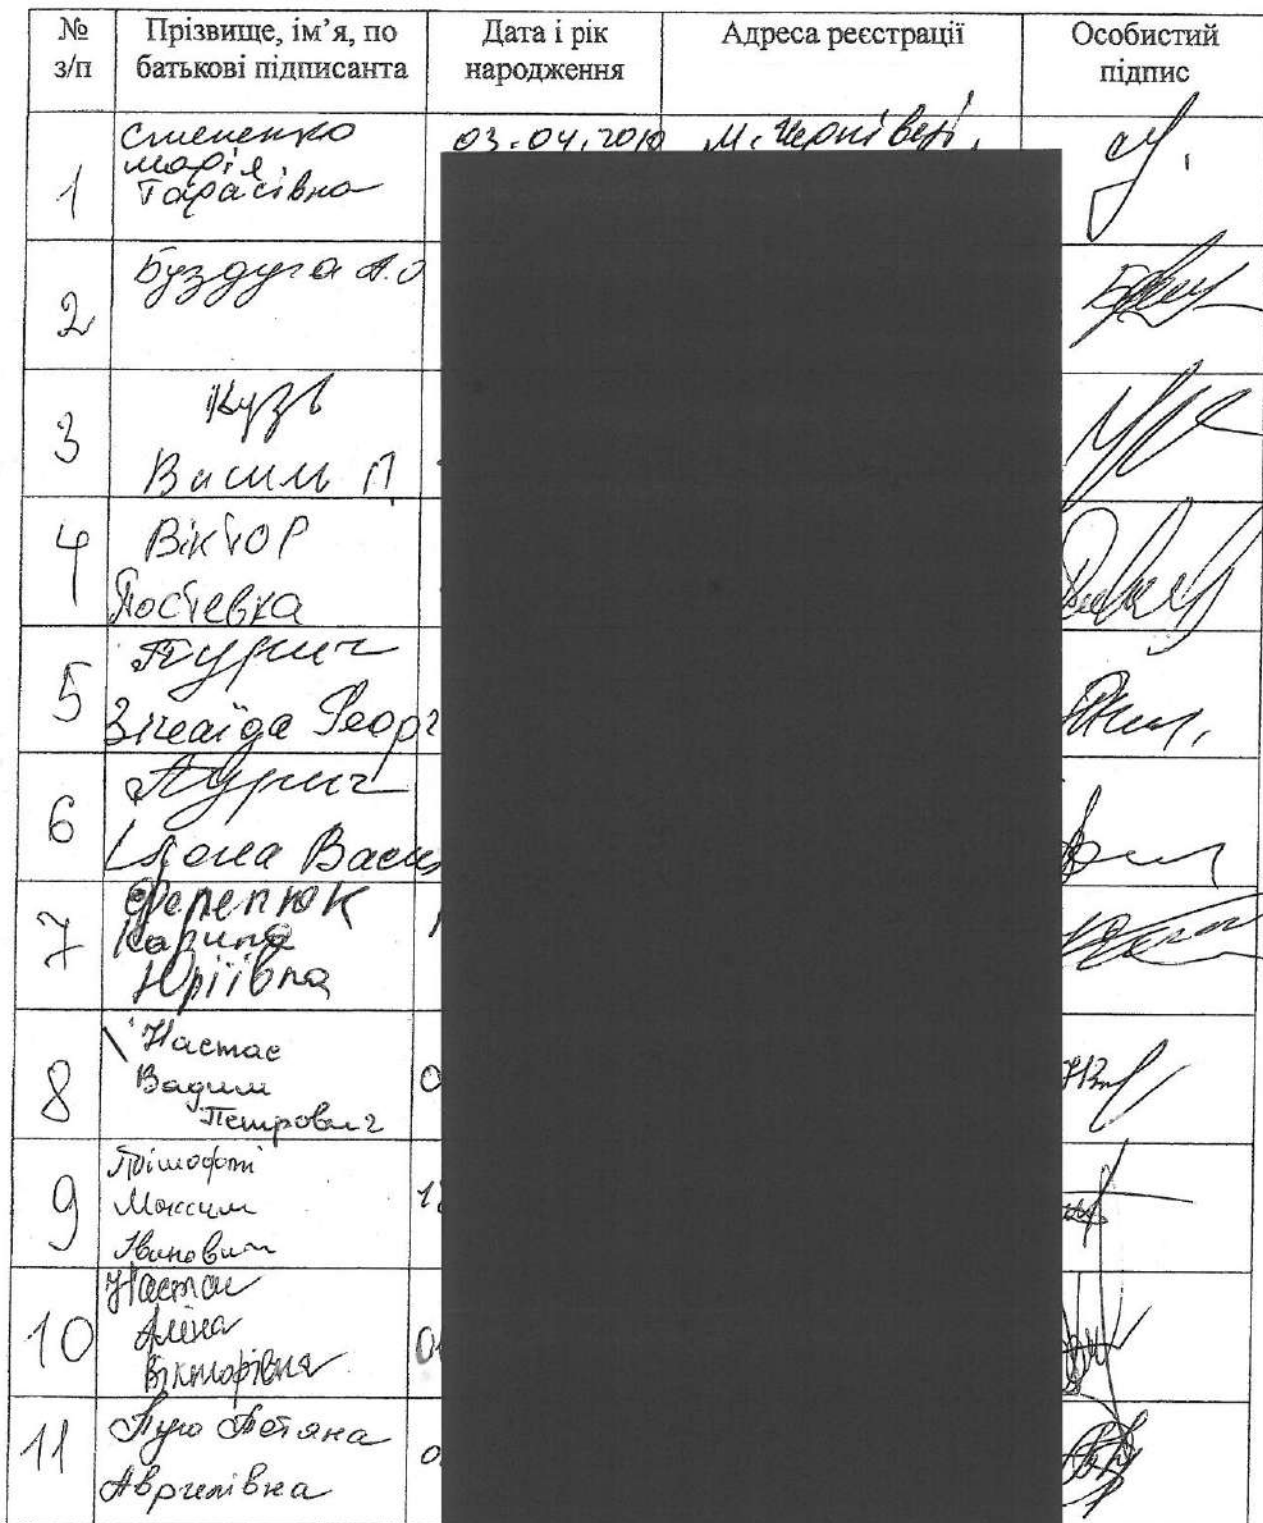 № з/п
Прізвище, ім’я, по батькові підписанта
Дата і рік народження
Адреса реєстрації
Особистий підпис
1
Марія
Тарасівна
03.04.2010
м. Чернівці,
2
Буздуга А.О
3
Кузь
Василь П
4
Віктор
Постевка
5
Пурич
Зінаїда Георг
6
Пурич
Ілона Васил
7
Карина
Юріївна
8
Настас
Вадим
Петрович
9
Максим
Іванович
10
Настас
Аліна
Вікторівна
11
Тетяна